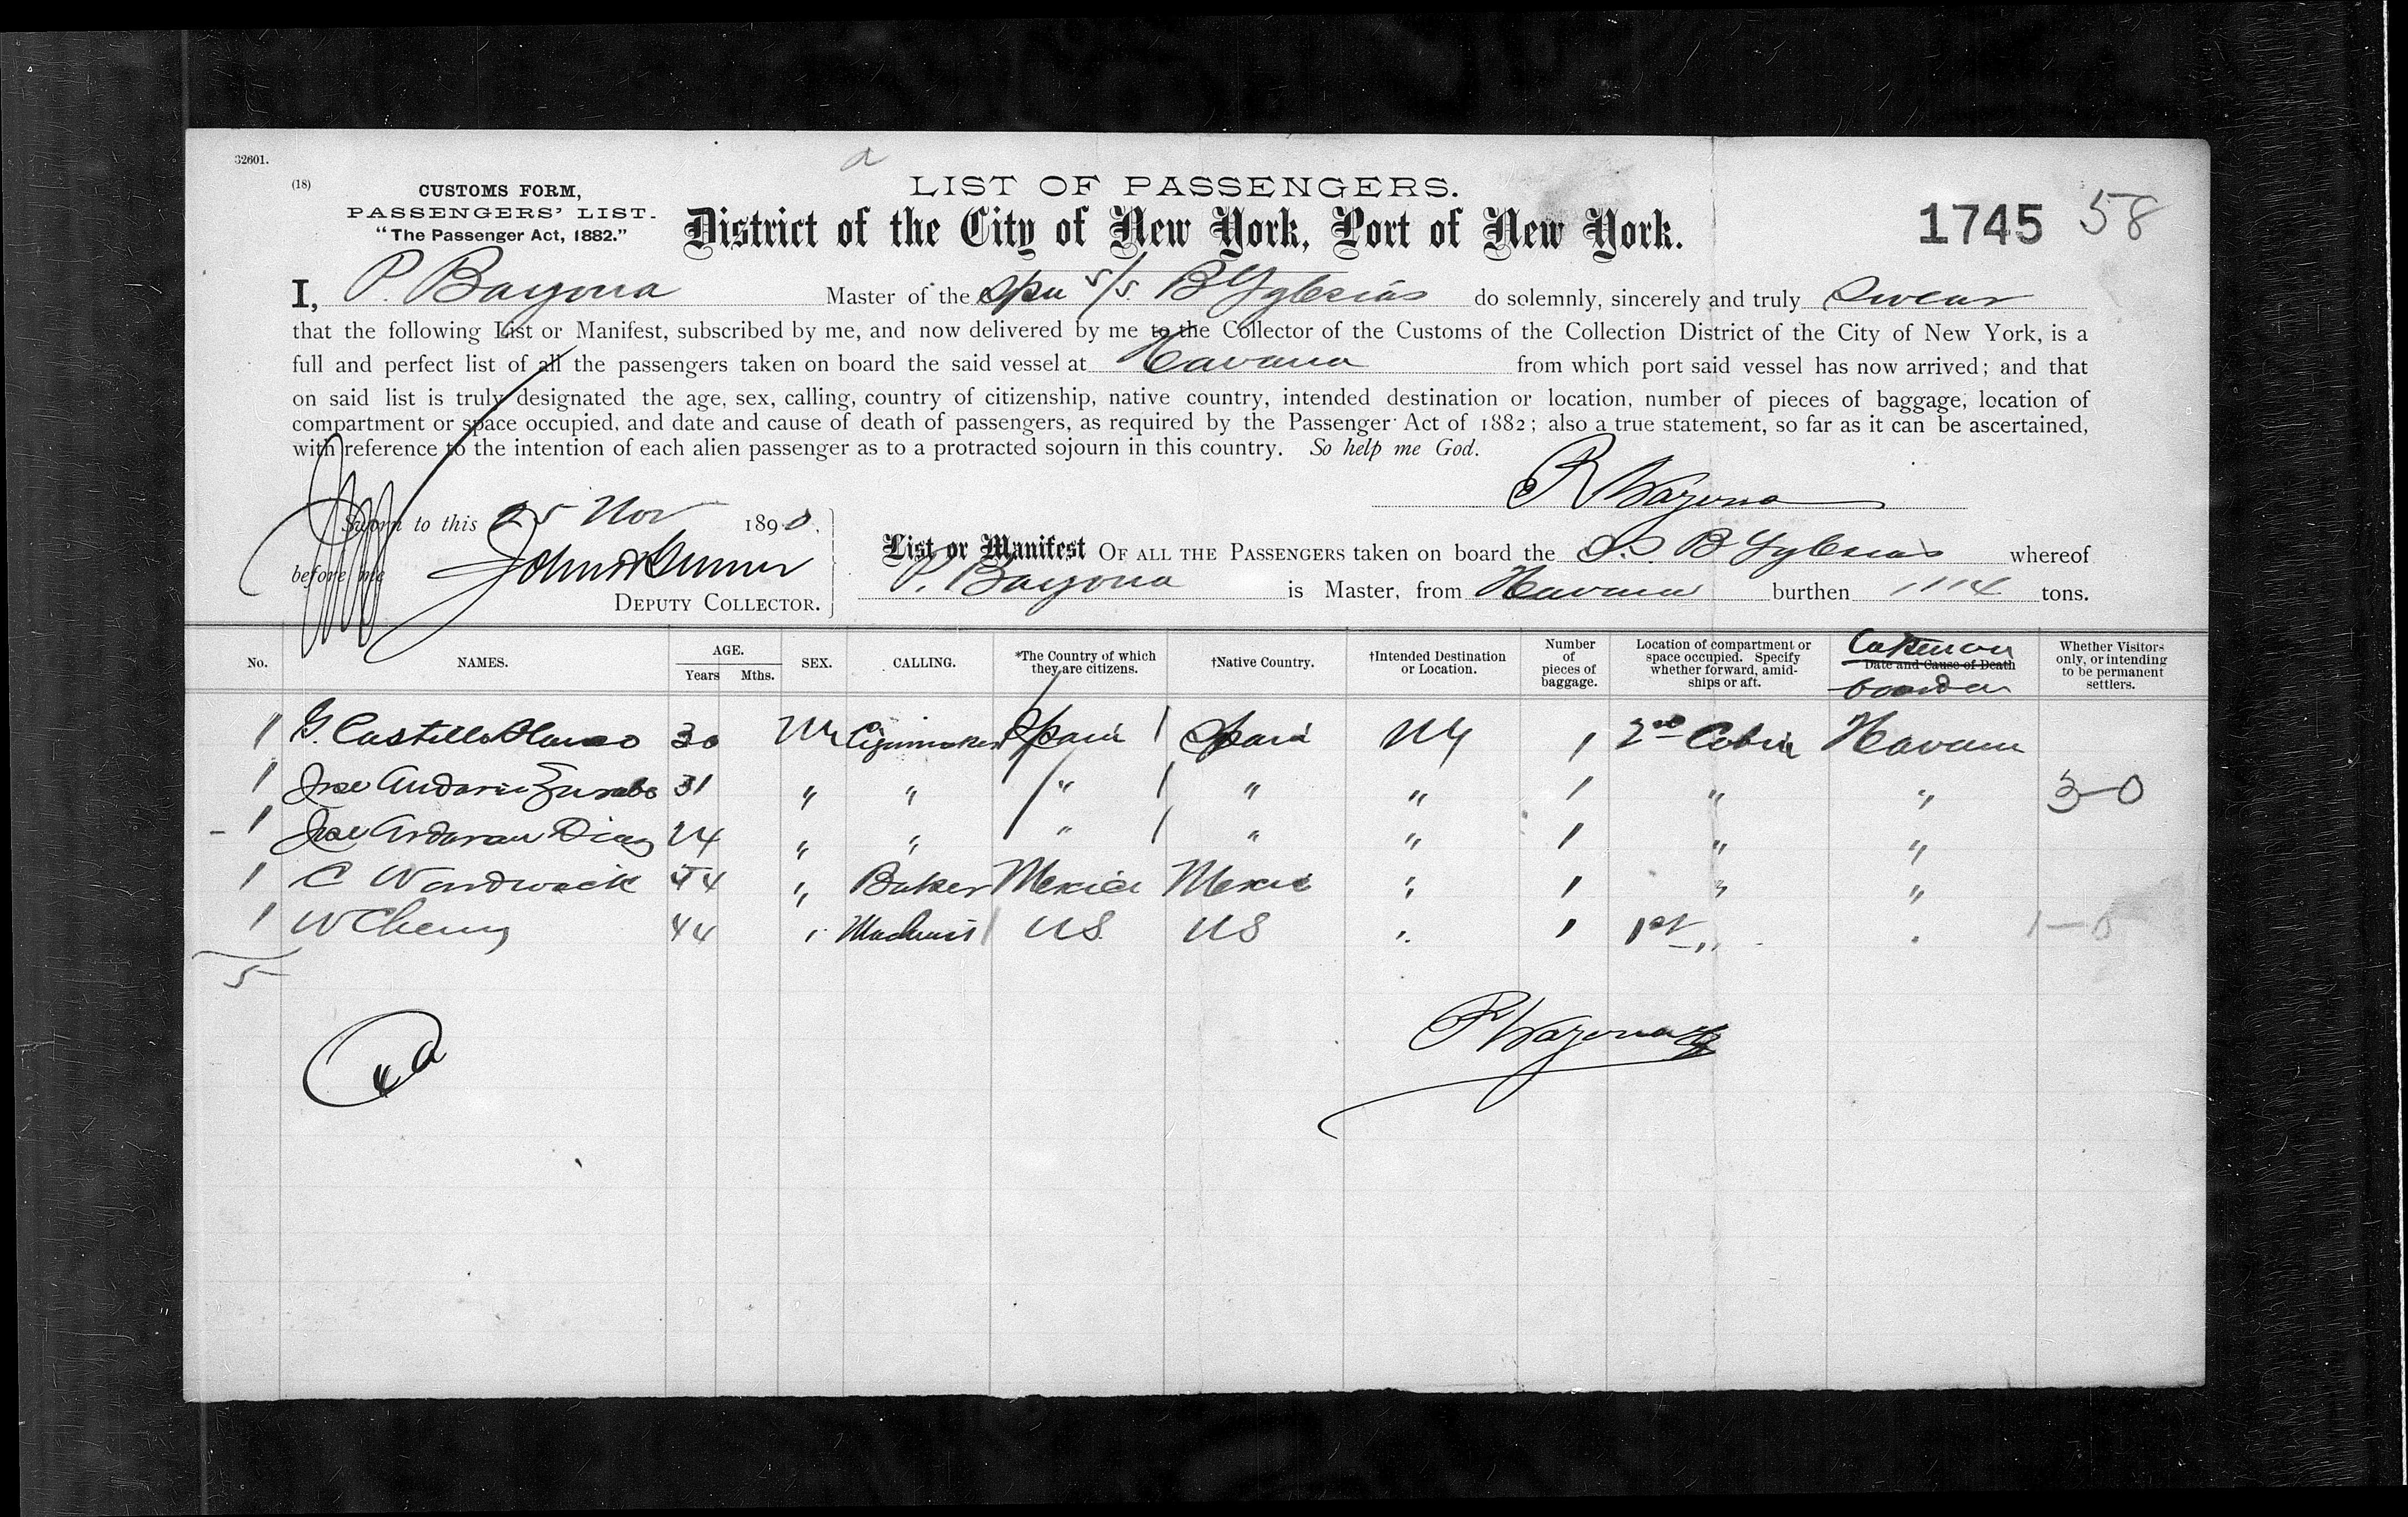 32601.
a
(18)
CUSTOMS FORM,
PASSENGERS' LIST.
"The Passenger Act, 1882."
LIST OF PASSENGERS.
District of the City of New York, Port of New York.
1745 58
I, P. Bayona Master of the Spn S/S. B Yglesias do solemnly, sincerely and truly Swear
that the following List or Manifest, subscribed by me, and now delivered by me to the Collector of the Customs of the Collection District of the City of New York, is a
full and perfect list of all the passengers taken on board the said vessel at Havana from which port said vessel has now arrived; and that
on said list is truly designated the age, sex, calling, country of citizenship, native country, intended destination or location, number of pieces of baggage, location of
compartment or space occupied, and date and cause of death of passengers, as required by the Passenger Act of 1882; also a true statement, so far as it can be ascertained,
with reference to the intention of each alien passenger as to a protracted sojourn in this country. So help me God.
P Bayona
Sworn to this 25 Nov 1890.
before me
DEPUTY COLLECTOR.
List or Manifest OF ALL THE PASSENGERS taken on board the S.S B Yglesias whereof
P. Bayona is Master, from Havana burthen 1114 tons.
No. NAMES. AGE. Years Mths. SEX. CALLING. *The Country of which they are citizens. †Native Country. †Intended Destination or Location. Number of pieces of baggage. Location of compartment or space occupied. Specify whether forward, amidships or aft. Date and Cause of Death Taken on board at Whether Visitors only, or intending to be permanent settlers.
1 G. Castillo Alonso 30 M Cigarmaker Spain 1 Spain NY 1 2nd Cabin Havana
1 Jose 31 " " " 1 " " 1 " " 3-0
1 Jose Diaz 24 " " " 1 " " 1 " "
1 C 44 " Baker Mexico Mexico " 1 " "
1 W Cherry 44 " Machinist US. US " 1 1st " 1-0
5
P Bayona